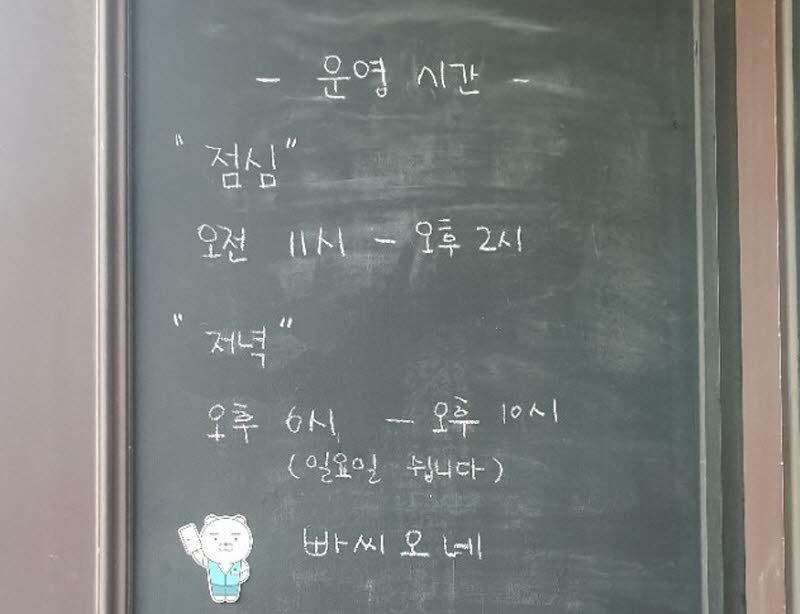 - 운영 시간 -
"점심"
오전 11시 - 오후 2시
"저녁"
오후 6시 - 오후 10시
(일요일 쉽니다)
빠씨오네